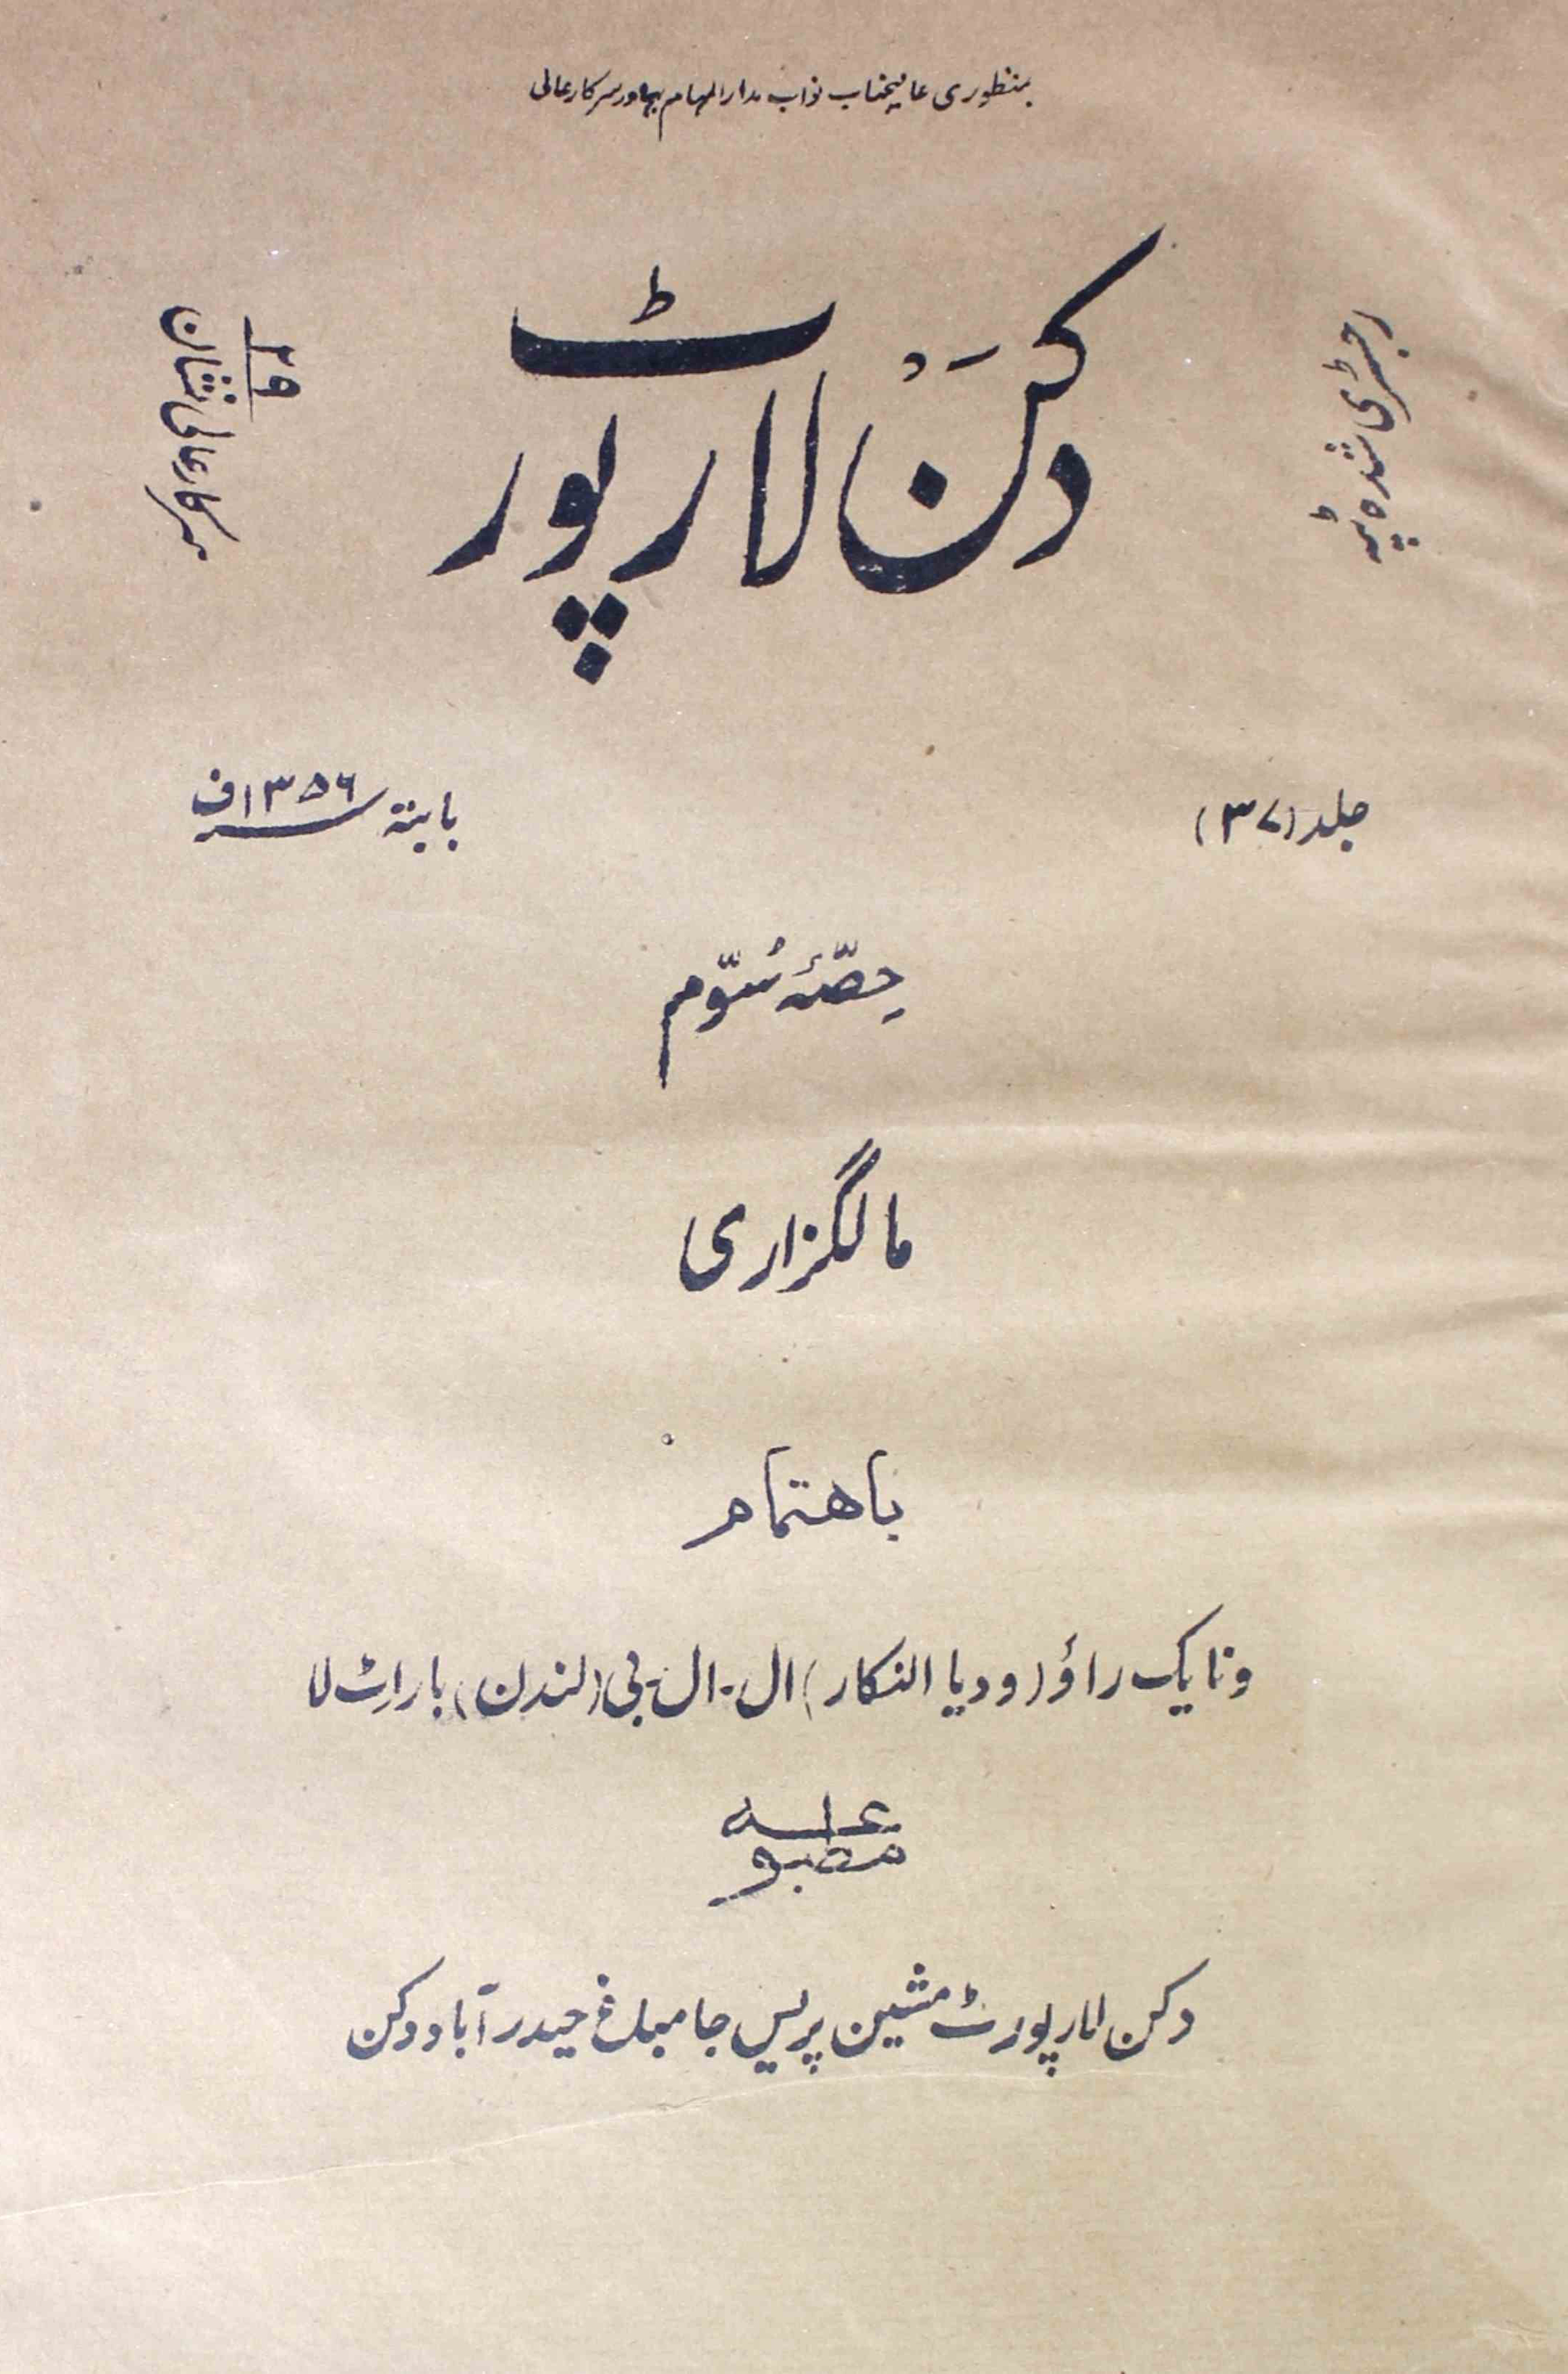 بمنظوری عالیجناب نواب مدارالمہام بہادر سرکار عالی
رجسٹری شدہ ٹپہ
دکن لا رپورٹ
سرکار عالی نشان ۲۹
جلد (۳۷)
بابتہ ۱۳۵۶ف
حصّۂ سُوّم
مالگزاری
باهتمام
ونایک راؤ (ودیا النکار) ال-ال-بی (لندن) بار اٹ لا
مطبوعہ
دکن لا رپورٹ مشین پریس جام باغ حیدرآباد دکن